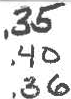 .35
.40
.36